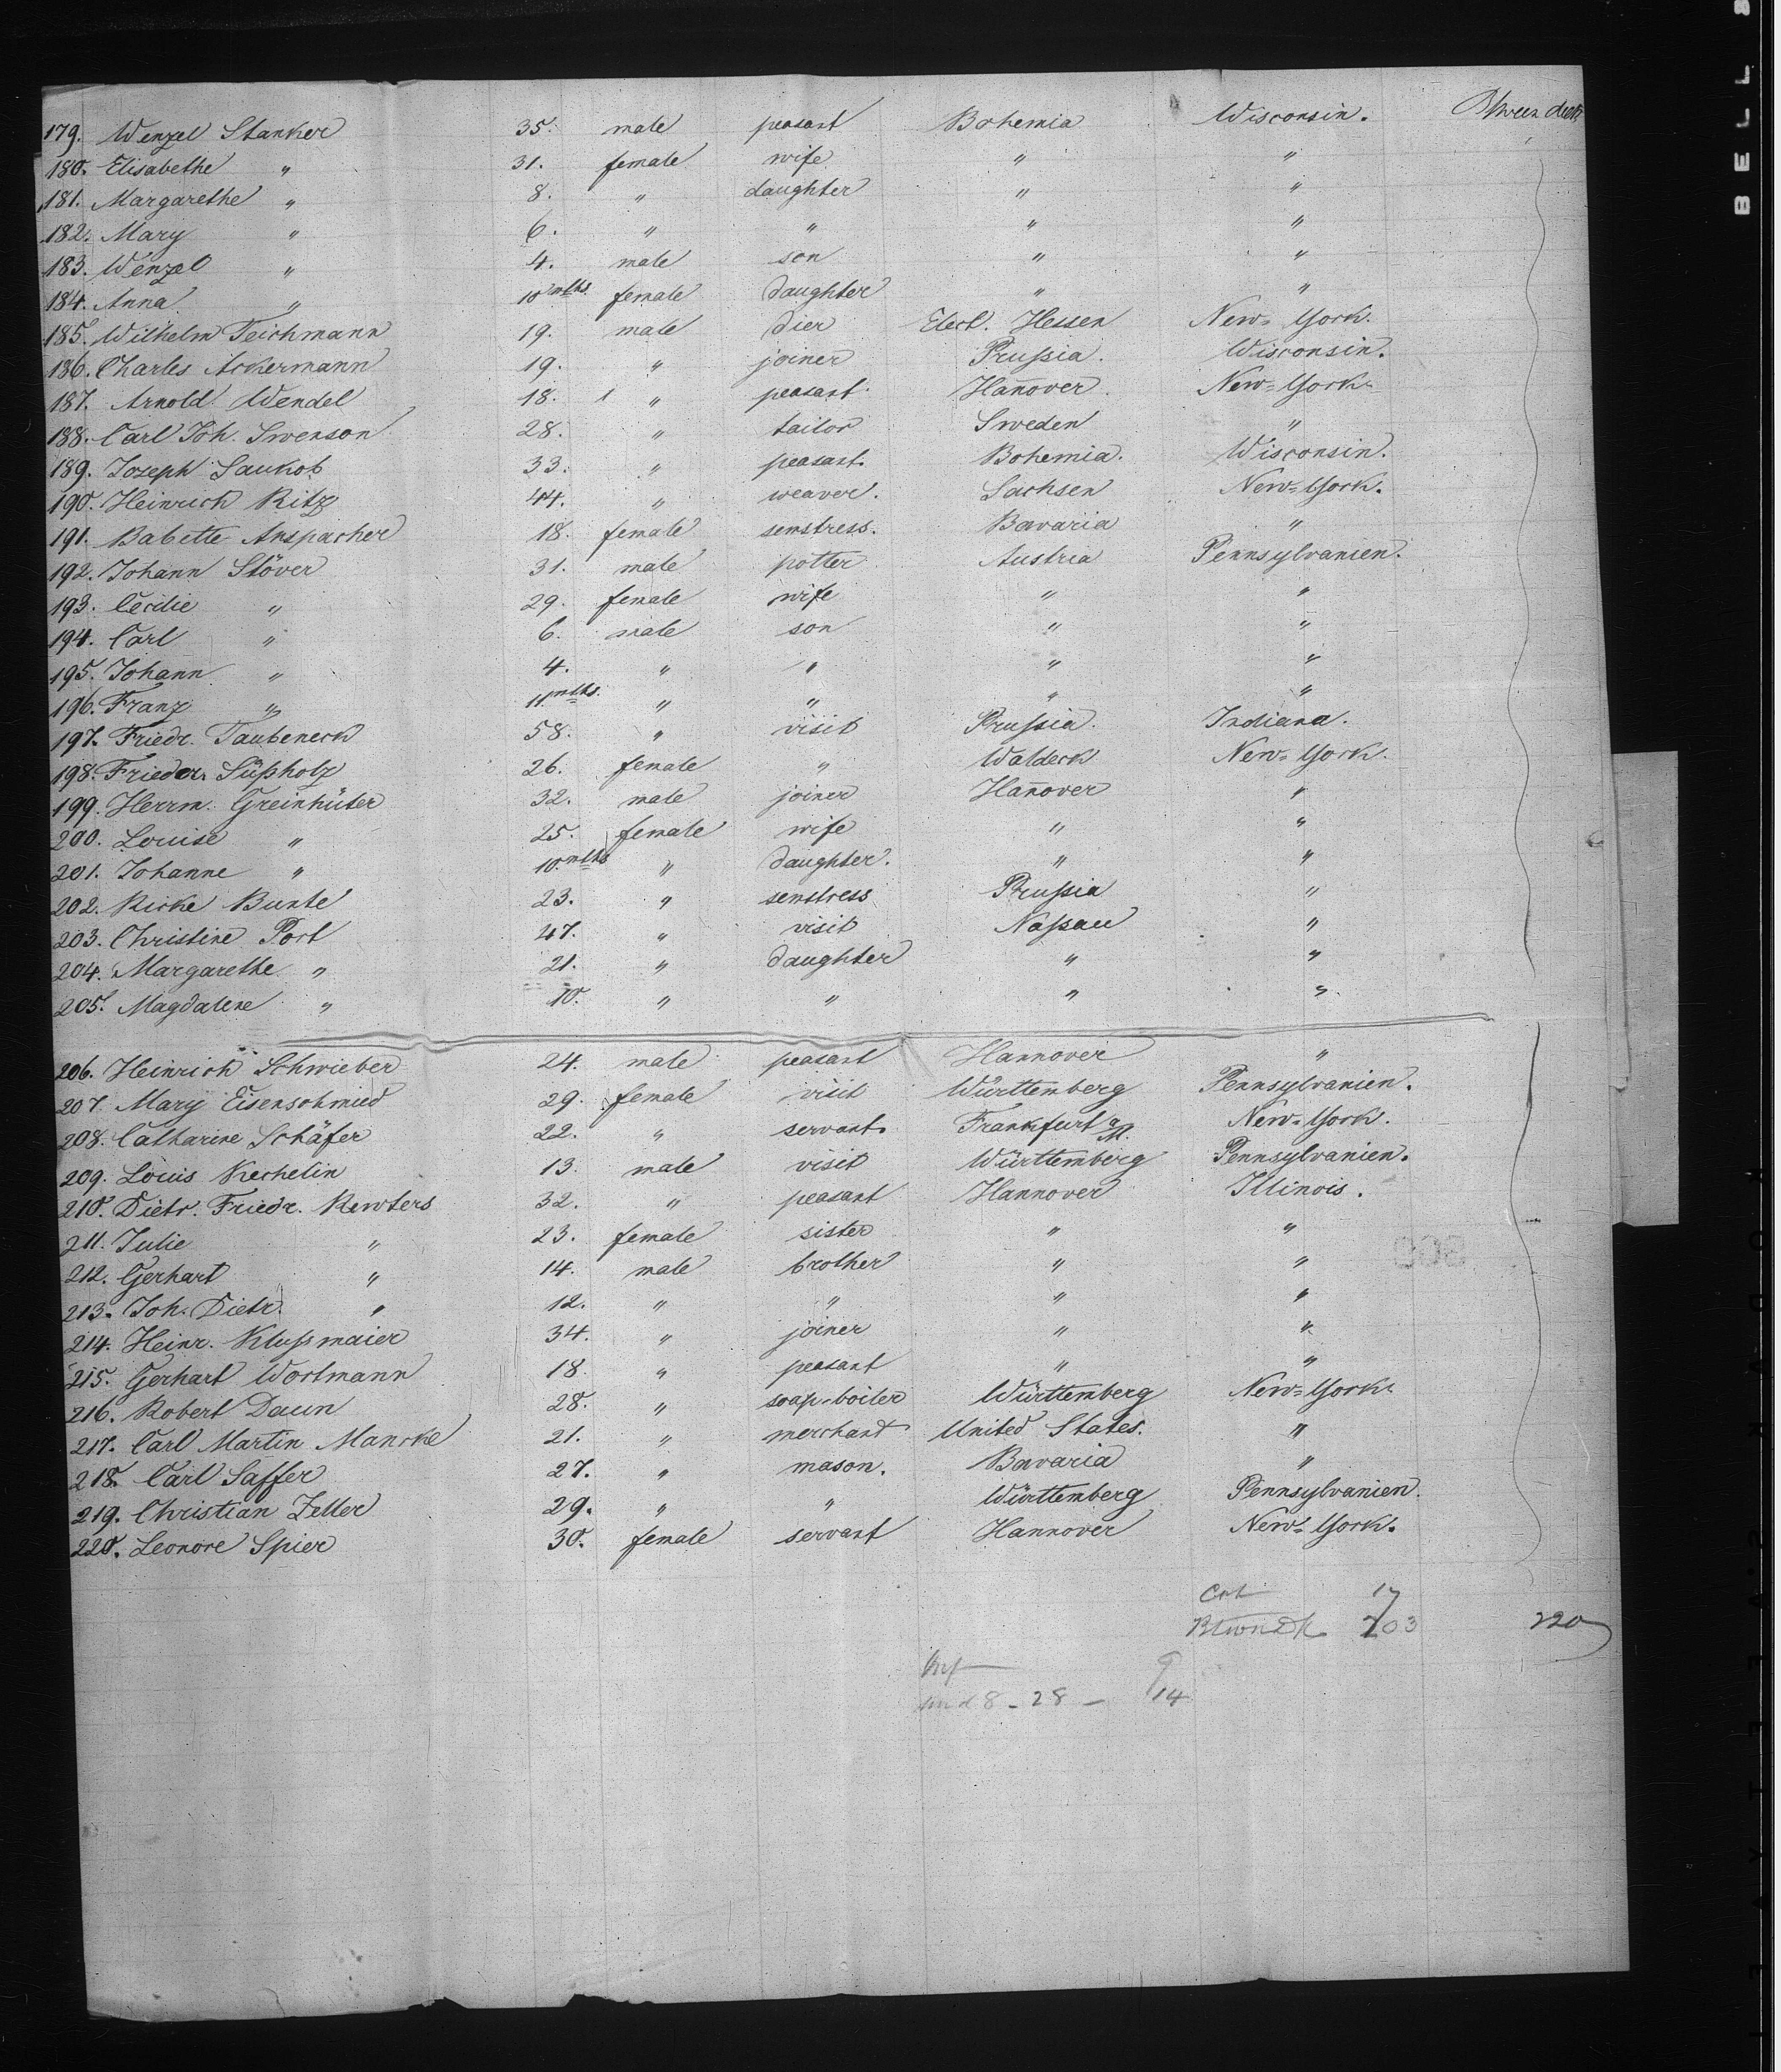 179. Wenzel Stanker 35. male peasant Bohemia Wisconsin. Btween deck
180. Elisabethe " 31. female wife " "
181. Margarethe " 8. " daughter " "
182. Mary " 6. " " " "
183. Wenzel " 4. male son " "
184. Anna " 10 mths. female daughter " "
185. Wilhelm Teichmann 19. male dier Elect. Hessen New=York.
186. Charles Ackermann 19. " joiner Prußia. Wisconsin.
187. Arnold Wendel 18. " peasant Hañover. New=York.
188. Carl Joh. Swenson 28. " tailor Sweden "
189. Joseph Saukob 33. " peasant. Bohemia. Wisconsin.
190. Heinrich Ritz 44. " weaver. Sachsen New=York.
191. Babette Anspacher 18. female semstress. Bavaria "
192. Johann Stöver 31. male potter Austria Pennsylvanien.
193. Cecilie " 29. female wife " "
194. Carl " 6. male son " "
195. Johann " 4. " " " "
196. Franz " 11 mths. " " " "
197. Friedr. Taubeneck 58. " visit Prußia. Indiana.
198. Frieder. Süßholz 26. female " Waldeck New=York.
199. Herrm. Greinhüter 32. male joiner Hañover "
200. Louise " 25. female wife " "
201. Johanne " 10. mths " daughter. " "
202. Ricke Bunte 23. " semstress Prußia "
203. Christine Port 47. " visit Naßau "
204. Margarethe " 21. " daughter " "
205. Magdalene " 10. " " " "
206. Heinrich Schwieber 24. male peasant Hannover "
207. Mary Eisenschmied 29. female visit Württemberg Pennsylvanien.
208. Catharine Schäfer 22. " servant. Frankfurt a/M. New=York.
209. Louis Kechelin 13. male visit Württemberg Pennsylvanien.
210. Dietr. Friedr. Rewters 32. " peasant Hannover Illinois.
211. Julie " 23. female sister " "
212. Gerhart " 14. male brother " "
213. Joh. Dietr. " 12. " " " "
214. Heinr. Klußmaier 34. " joiner " "
215. Gerhart Wortmann 18 " peasant " "
216. Robert Daun 28. " soap-boiler Württemberg New=York
217. Carl Martin Mancke 21. " merchant United States. "
218. Carl Saffer 27. " mason. Bavaria "
219. Christian Zeller 29. " " Württemberg Pennsylvanien.
220. Leonore Spier 30. female servant Hannover New=York.
17
203 220
9
8 - 28 - 14
BELL